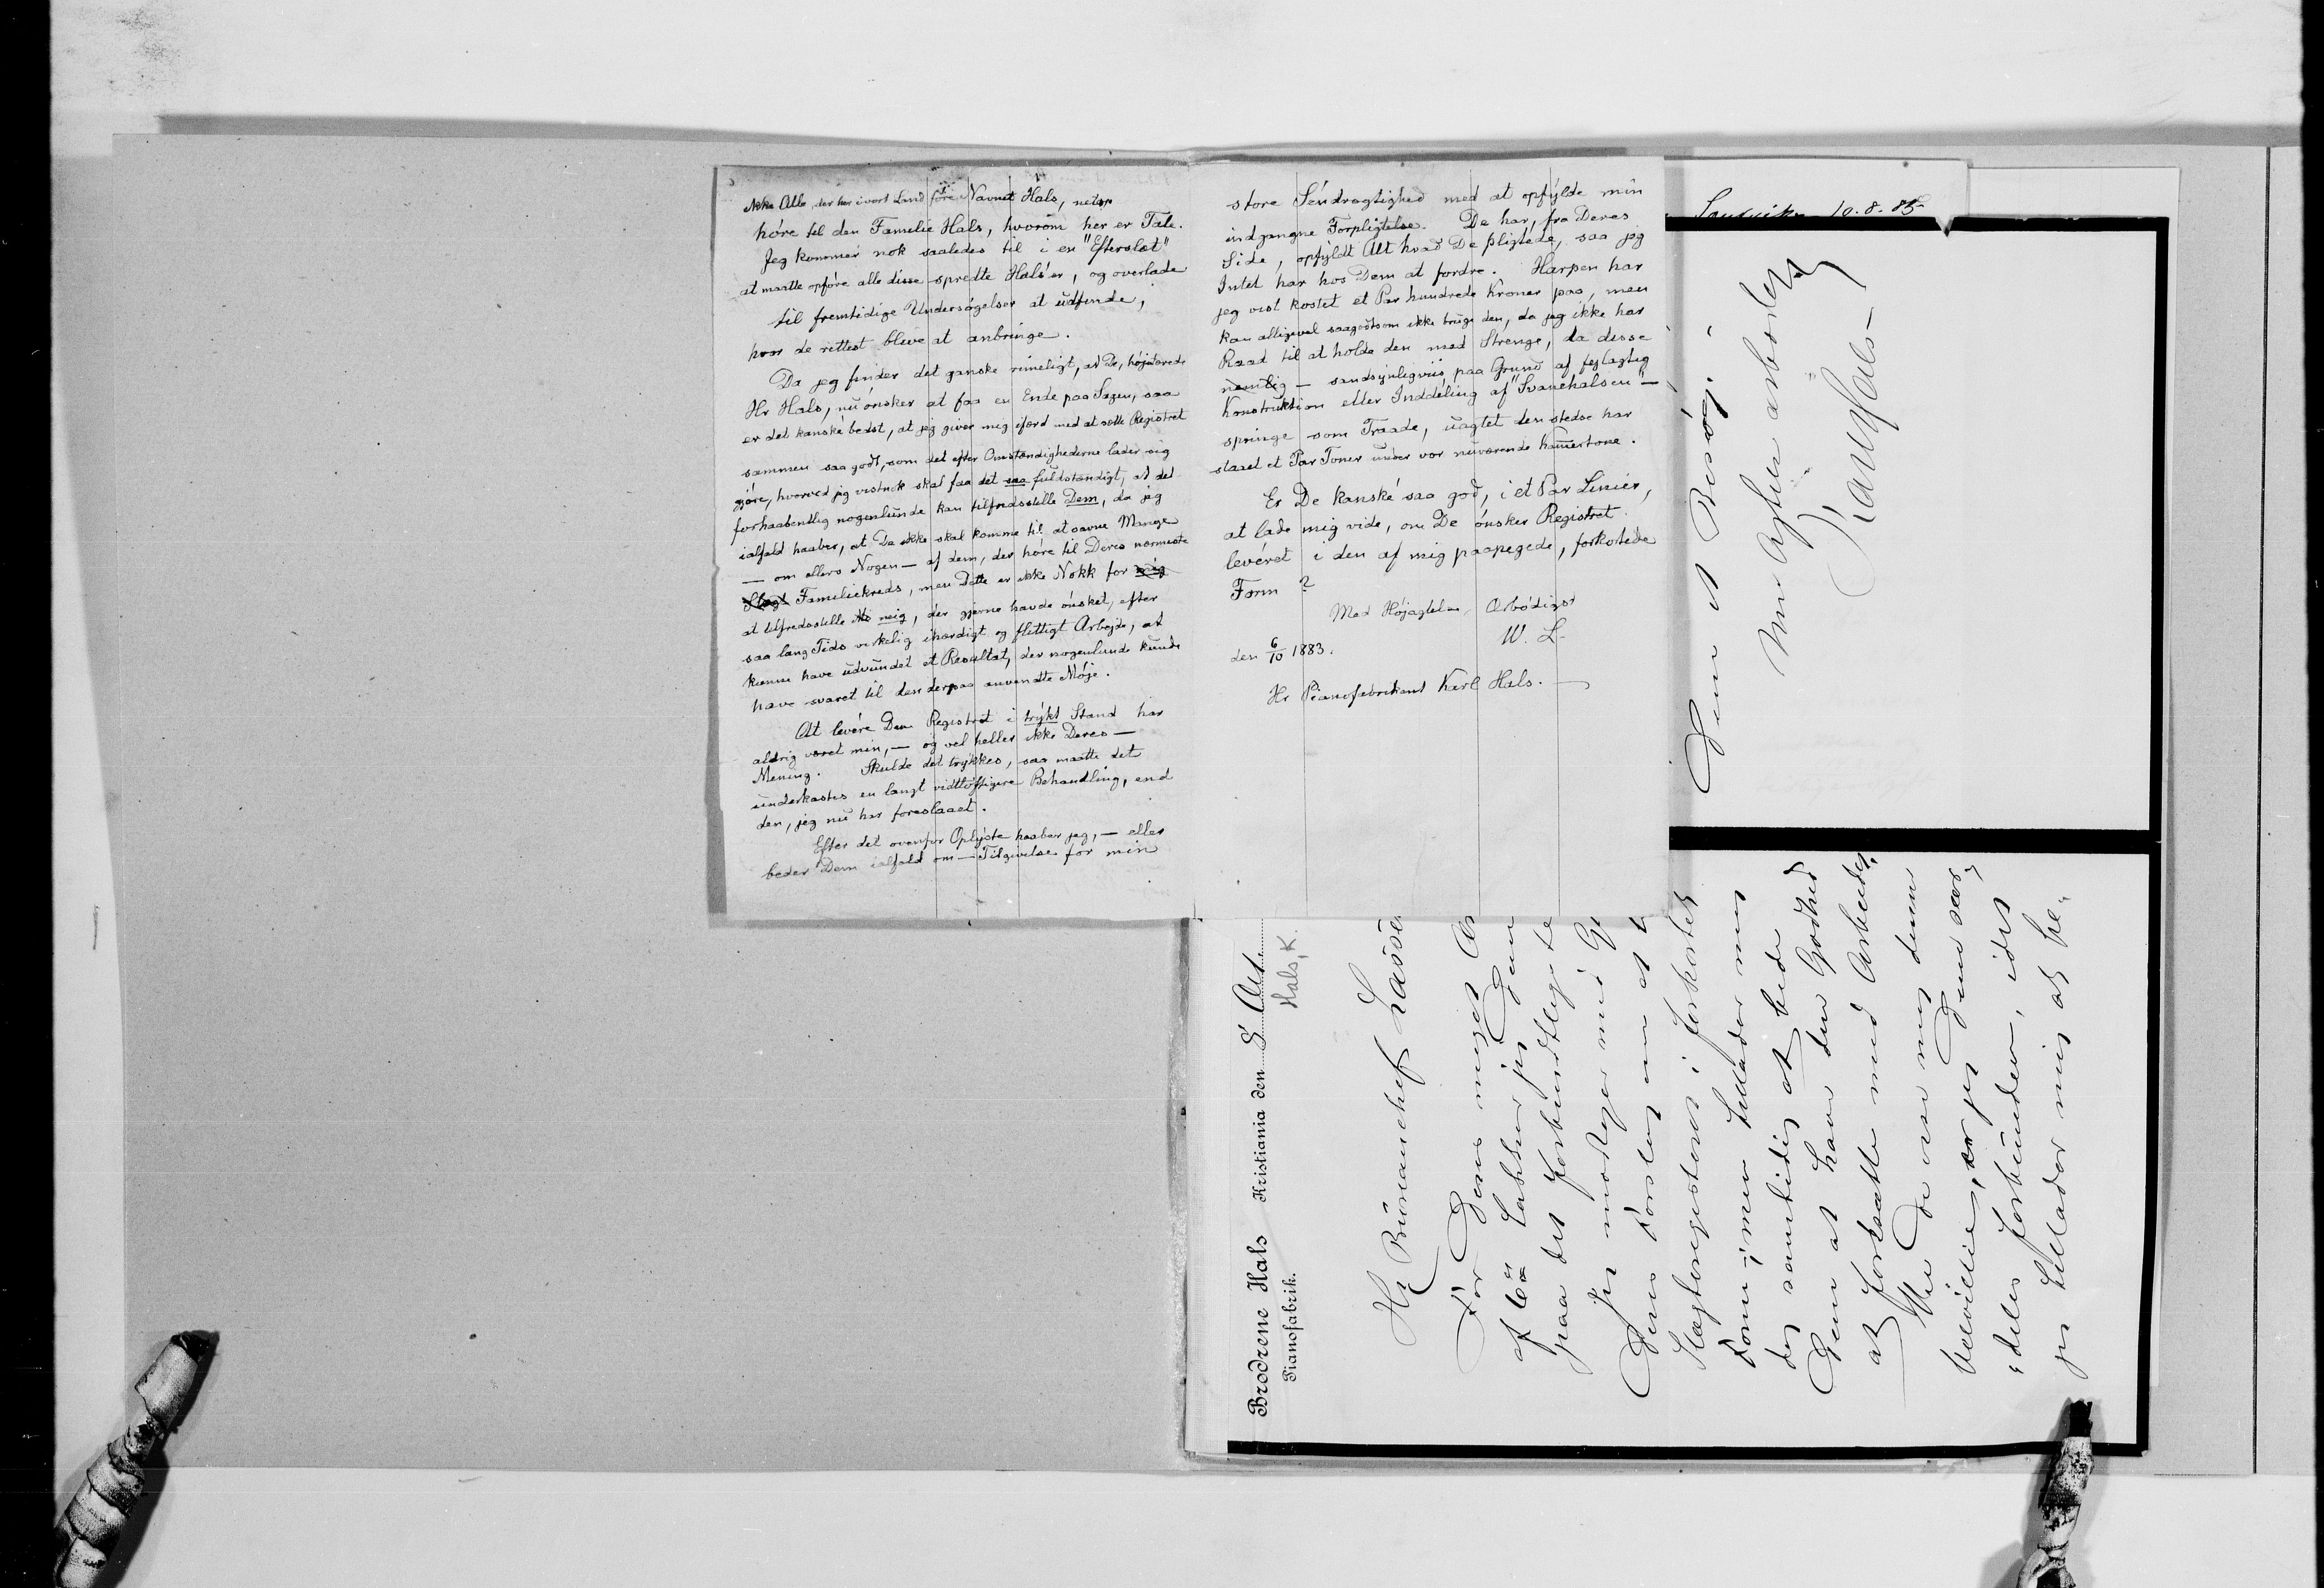 ikke Alle, der her i vort Land føre Navnet Hals, netop
høre til den Familie Hals, hvorom her er Tale.
Jeg kommer nok saaledes til i en "Efterslæt"
at maatte opføre alle disse spredte Hals'er, og overlade
til fremtidige Undersøgelser at udfinde,
hvor de rettest bleve at anbringe.
Da jeg finder det ganske rimeligt, at De, højstærede
Hr Hals, nu ønsker at faa en Ende paa Sagen, saa
er det kanske bedst, at jeg giver mig ifærd med at sætte Registret
sammen saa godt, som det efter Omstændighederne lader sig
gjøre, hvorved jeg vistnok skal faa det saa fuldstændigt, at det
forhaabentlig nogenlunde kan tilfredsstille Dem, da jeg
ialfald haaber, at De ikke skal komme til at savne Mange
— om ellers Nogen — af dem, der høre til Deres nærmeste
Slægt Familiekreds, men Dette er ikke Nokk for mig
at tilfredsstille mig, der gjerne havde ønsket, efter
saa lang Tids virkelig ihærdigt og flittigt Arbejde, at
kunne have udvundet et Resultat, der nogenlunde kunde
have svaret til den derpaa anvendte Møje.
At levére Dem Registret i trykt Stand har
aldrig været min, — og vel heller ikke Deres —
Mening. Skulde det trykkes, saa maatte det
underkastes en langt vidtløftigere Behandling, end
den, jeg nu har foreslaaet.
Efter det ovenfor Oplyste haaber jeg, — eller
beder Dem ialfald om — Tilgivelse for min
store Séndrægtighed med at opfylde min
indgangne Forpligtelse. De har, fra Deres
Side, opfyldt Alt hvad De pligtede, saa jeg
Intet har hos Dem at fordre. Harpen har
jeg vist kostet et Par hundrede Kroner paa, men
kan alligevel saagodtsom ikke bruge den, da jeg ikke har
Raad til at holde den med Strenge, da disse
nemlig — sandsynligviis paa Grund af fejlagtig
Konstruktion eller Inddéling af "Svanehalsen" —
springe som Traade, uagtet den stedse har
staaet et Par Toner under vor nuværende Kamertone.
Er De kanské saa god, i et Par Linier,
at lade mig vide, om De ønsker Registret
levéret i den af mig paapegede, forkortede
Form?
Med Højagtelse, Ærbødigst
W. L.
den 6/10 1883.
Hr Pianofabrikant Karl Hals.
Sandvika 10.8.85
Dem et Besøg.
Min Agtelse ærbødigst
Karl Hals
Brødrene Hals
Pianofabrik.
Kristiania den 8 Oct.
Hals, K.
Hr Büreauchef Lasse
For Deres meget
af 6 takker jeg Dem
paa det forbindtligste
Jeg modtager med
Deres Forslag om at
Slægtregisteret i forkortet
Form, men tillader mig
dog samtidig at bede
Dem at have den Godhed
at fortsætte med Arbeidet.
Ville De vise mig denne
velvillie, er jeg Dem sær-
deles forbunden, idet
jeg tillader mig at be-